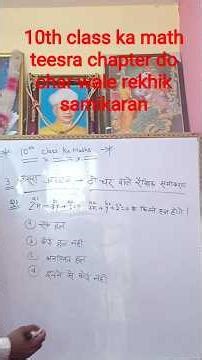 10th class ka math
teesra chapter do
char wale rekhik
samikaran
10th class ka Maths
3. तीसरा अध्याय - दो चर वाले रैखिक समीकरण
के कितने हल होंगे।
① एक हल
② कोई हल नहीं
③ अनगिनत हल
④ इनमें से कोई नहीं